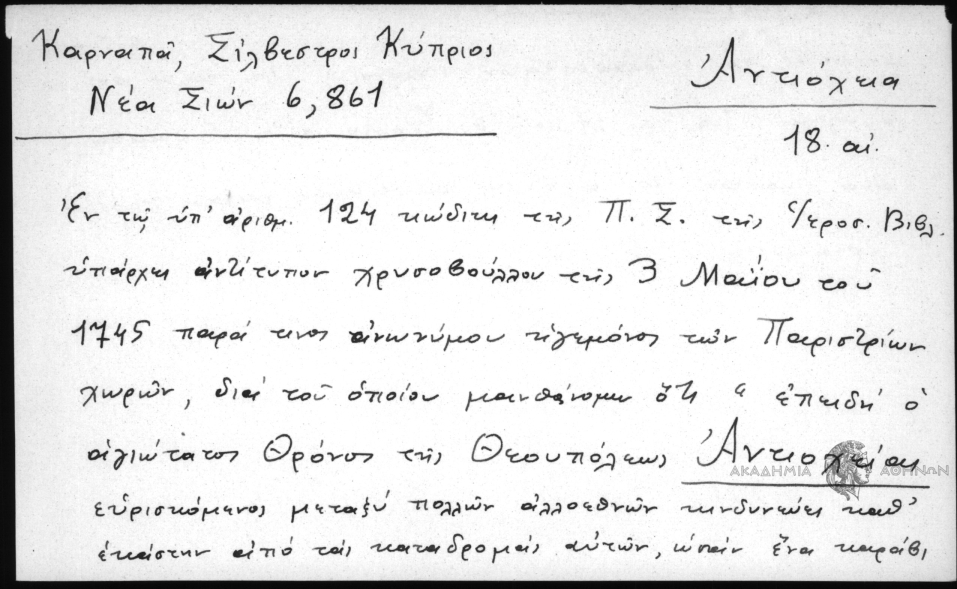 Καρναπᾶ, Σίλβεστρος Κύπριος
Νέα Σιών 6, 861
Ἀντιόχεια
18. αἰ.
Ἐν τῷ ὑπ' ἀριθμ. 124 κώδικι τῆς Π. Σ. τῆς Ἱεροσ. Βιβλ.
ὑπάρχει ἀντίτυπον χρυσοβούλλου τῆς 3 Μαΐου τοῦ
1745 παρά τινος ἀνωνύμου ἡγεμόνος τῶν Παριστρίων
χωρῶν, διά τοῦ ὁποίου μανθάνομεν ὅτι " ἐπειδή ὁ
ἁγιώτατος Θρόνος τῆς Θεουπόλεως Ἀντιοχείας
ΑΚΑΔΗΜΙΑ ΑΘΗΝΩΝ
εὑρισκόμενος μεταξύ πολλῶν ἀλλοεθνῶν κινδυνεύει καθ'
ἑκάστην ἀπό τάς καταδρομάς αὐτῶν, ὡσάν ἕνα καράβι